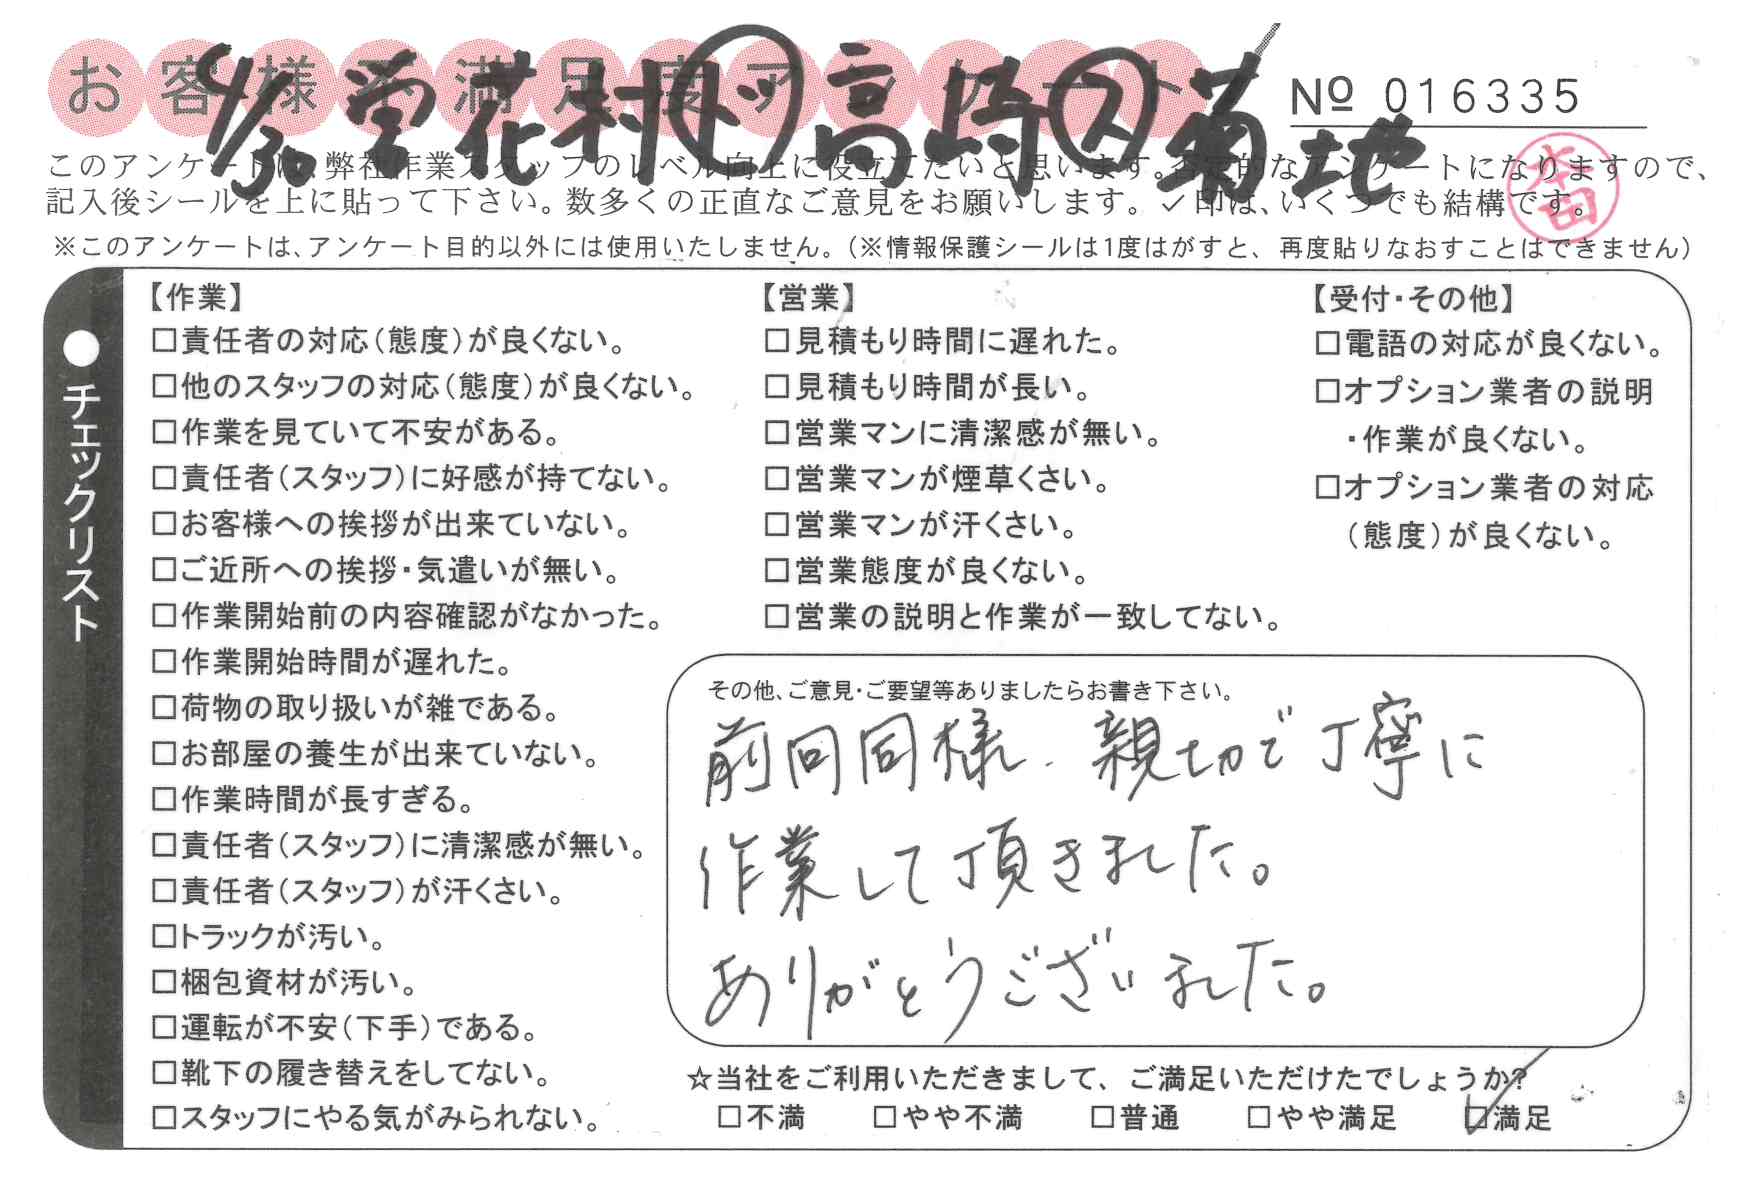 お客様不満足度アンケート
4/30 営 花村 ト 高崎 ス 菊地
Nº 016335
このアンケートは、弊社作業スタッフのレベル向上に役立てたいと思います。否定的なアンケートになりますので、
記入後シールを上に貼って下さい。数多くの正直なご意見をお願いします。✓印は、いくつでも結構です。
本田
※このアンケートは、アンケート目的以外には使用いたしません。(※情報保護シールは1度はがすと、再度貼りなおすことはできません)
●チェックリスト
【作業】
□責任者の対応(態度)が良くない。
□他のスタッフの対応(態度)が良くない。
□作業を見ていて不安がある。
□責任者(スタッフ)に好感が持てない。
□お客様への挨拶が出来ていない。
□ご近所への挨拶・気遣いが無い。
□作業開始前の内容確認がなかった。
□作業開始時間が遅れた。
□荷物の取り扱いが雑である。
□お部屋の養生が出来ていない。
□作業時間が長すぎる。
□責任者(スタッフ)に清潔感が無い。
□責任者(スタッフ)が汗くさい。
□トラックが汚い。
□梱包資材が汚い。
□運転が不安(下手)である。
□靴下の履き替えをしてない。
□スタッフにやる気がみられない。
【営業】
□見積もり時間に遅れた。
□見積もり時間が長い。
□営業マンに清潔感が無い。
□営業マンが煙草くさい。
□営業マンが汗くさい。
□営業態度が良くない。
□営業の説明と作業が一致してない。
【受付・その他】
□電語の対応が良くない。
□オプション業者の説明
・作業が良くない。
□オプション業者の対応
(態度)が良くない。
その他、ご意見・ご要望等ありましたらお書き下さい。
前回同様、親切で丁寧に
作業して頂きました。
ありがとうございました。
☆当社をご利用いただきまして、ご満足いただけたでしょうか?
□不満 □やや不満 □普通 □やや満足 ☑満足